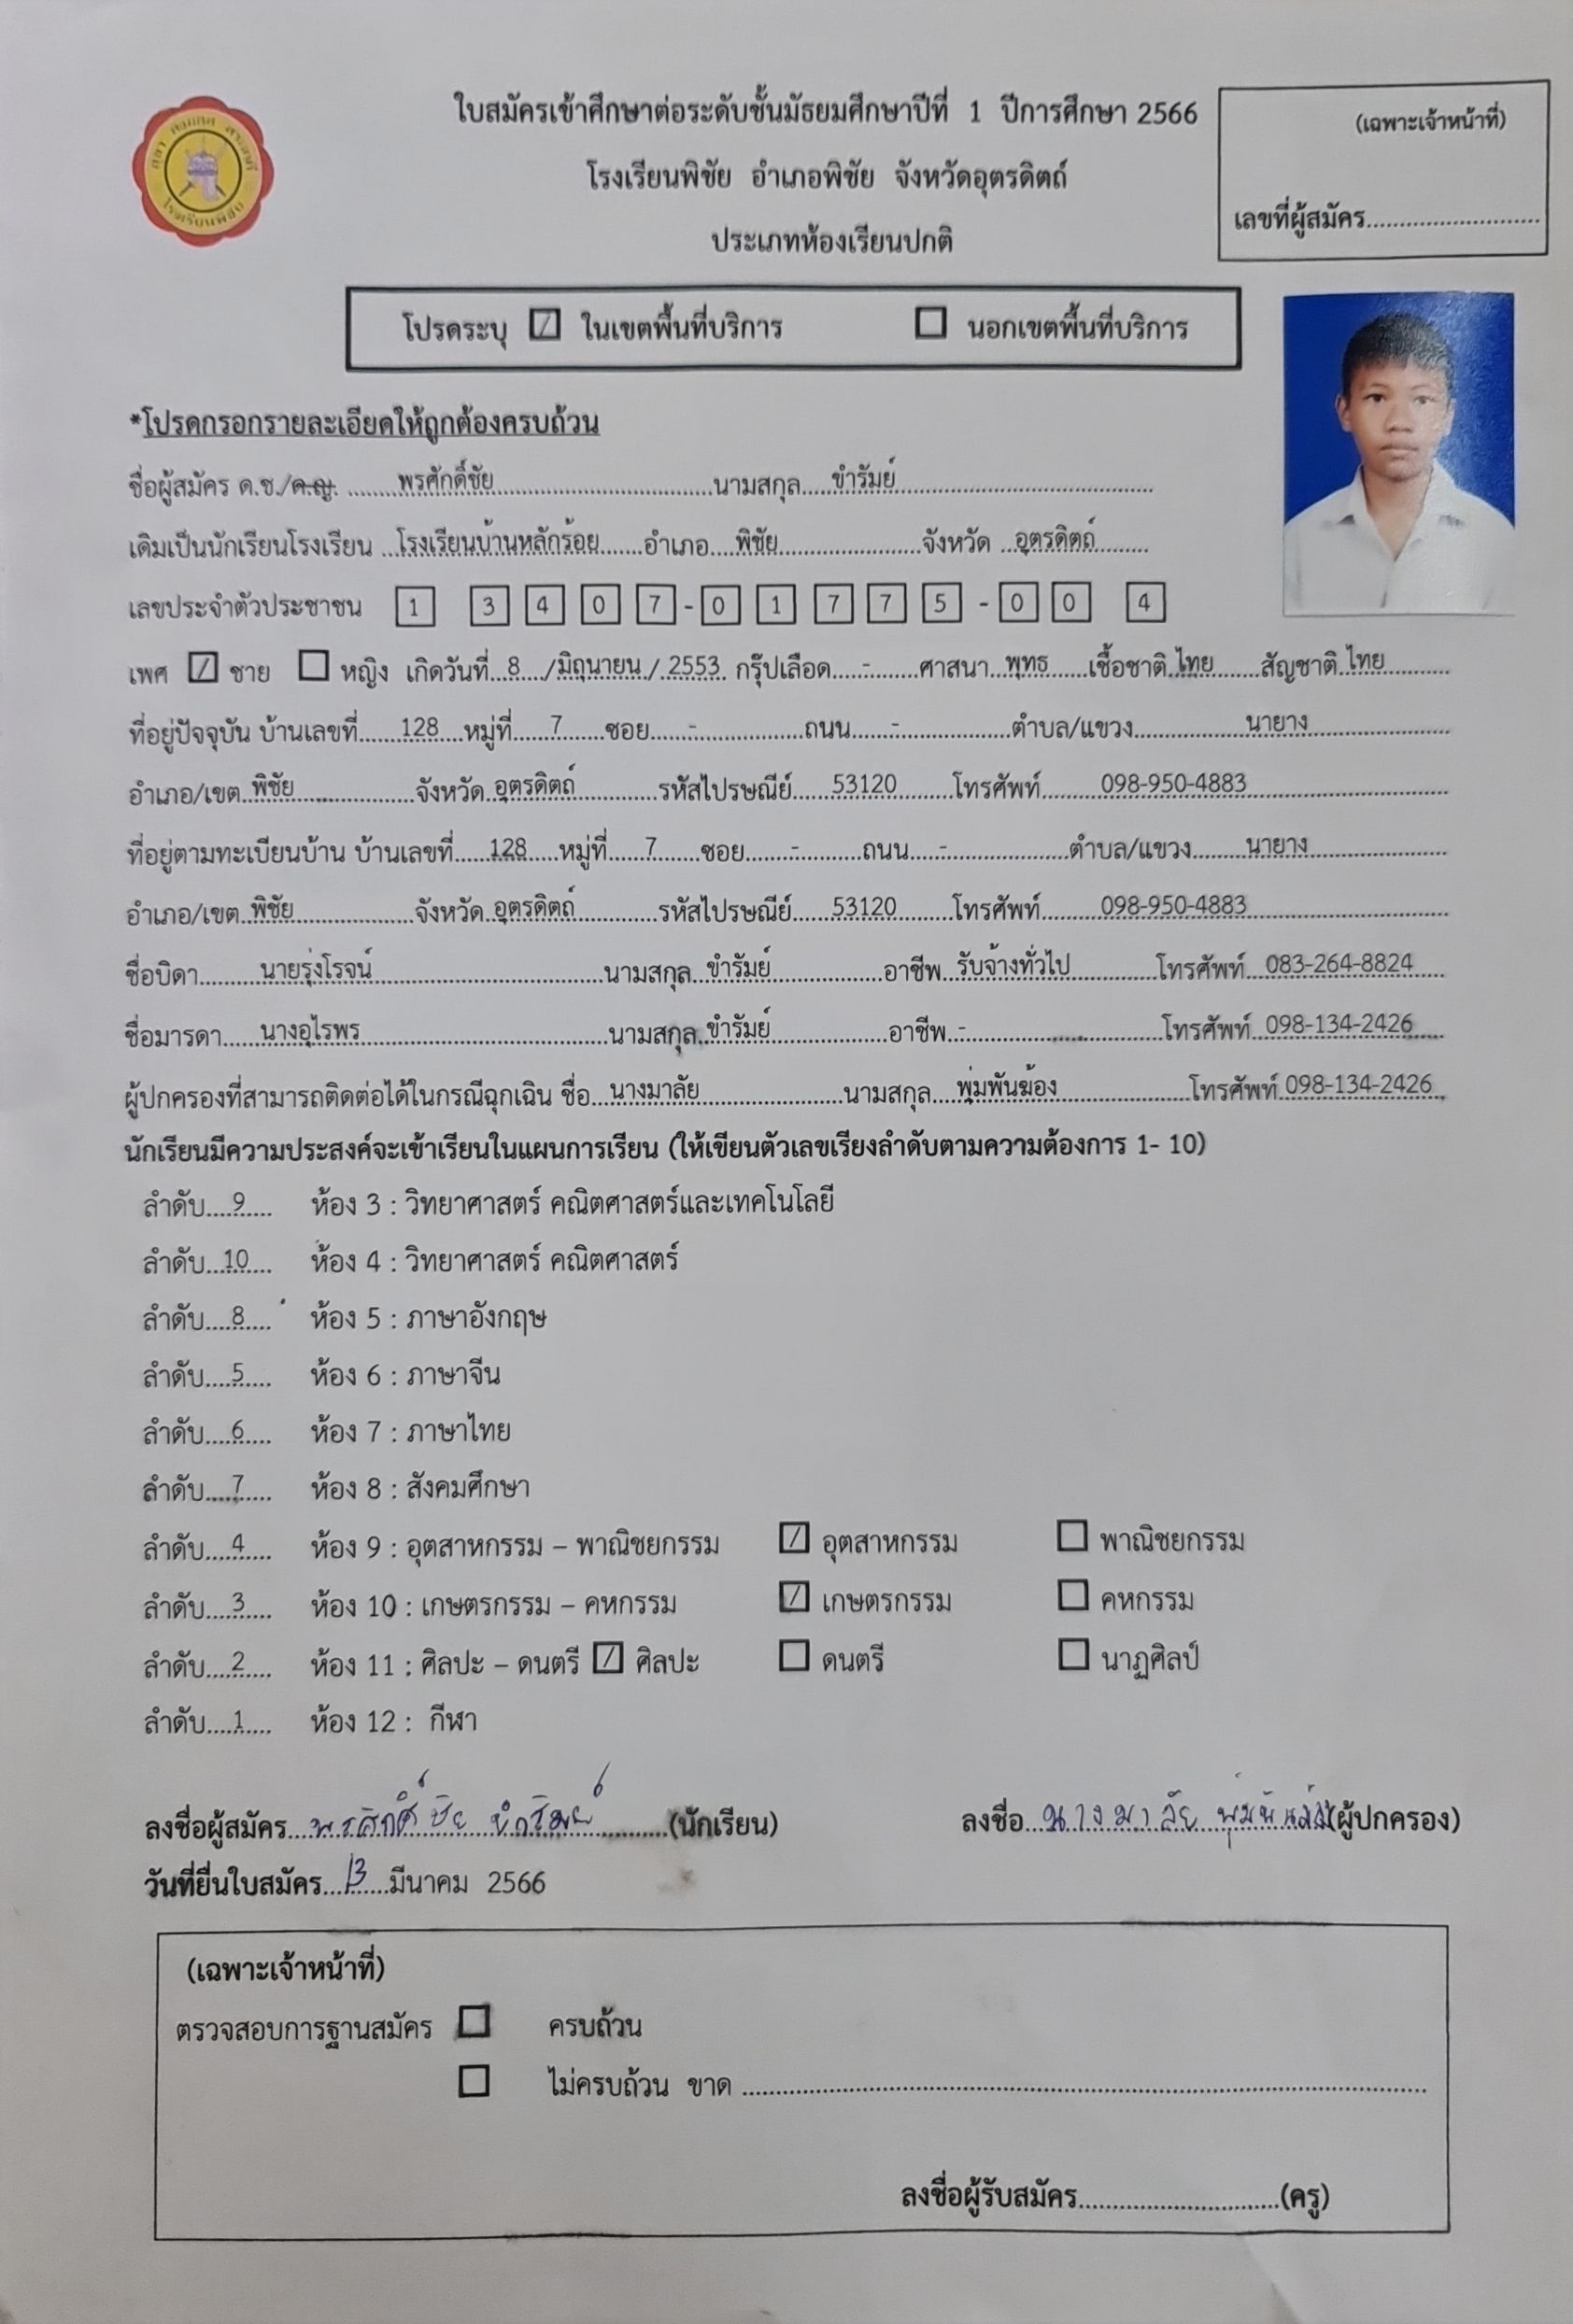 ใบสมัครเข้าศึกษาต่อระดับชั้นมัธยมศึกษาปีที่ 1 ปีการศึกษา 2566
(เฉพาะเจ้าหน้าที่)
โรงเรียนพิชัย อำเภอพิชัย จังหวัดอุตรดิตถ์
เลขที่ผู้สมัคร..........................
ประเภทห้องเรียนปกติ
โรงเรียนพิชัย
โปรดระบุ ☑ ในเขตพื้นที่บริการ ☐ นอกเขตพื้นที่บริการ
*โปรดกรอกรายละเอียดให้ถูกต้องครบถ้วน
ชื่อผู้สมัคร ด.ช./ด.ญ. ........พรศักดิ์ชัย................................นามสกุล.....ขำรัมย์........................................
เดิมเป็นนักเรียนโรงเรียน ..โรงเรียนบ้านหลักร้อย......อำเภอ....พิชัย......................จังหวัด ..อุตรดิตถ์........
เลขประจำตัวประชาชน 1 3 4 0 7 - 0 1 7 7 5 - 0 0 4
เพศ ☑ ชาย ☐ หญิง เกิดวันที่..8.../มิถุนายน./.2553. กรุ๊ปเลือด....-.......ศาสนา...พุทธ......เชื้อชาติ.ไทย.......สัญชาติ.ไทย..........
ที่อยู่ปัจจุบัน บ้านเลขที่......128....หมู่ที่.....7......ซอย......-................ถนน......-.................ตำบล/แขวง.................นายาง......................
อำเภอ/เขต..พิชัย..................จังหวัด..อุตรดิตถ์............รหัสไปรษณีย์......53120........โทรศัพท์.........098-950-4883..............................
ที่อยู่ตามทะเบียนบ้าน บ้านเลขที่.....128.....หมู่ที่......7.......ซอย.......-.........ถนน........-..................ตำบล/แขวง.........นายาง......................
อำเภอ/เขต..พิชัย..................จังหวัด..อุตรดิตถ์............รหัสไปรษณีย์......53120........โทรศัพท์.........098-950-4883..............................
ชื่อบิดา.........นายรุ่งโรจน์...................................นามสกุล..ขำรัมย์.................อาชีพ..รับจ้างทั่วไป.............โทรศัพท์...083-264-8824.....
ชื่อมารดา......นางอุไรพร.....................................นามสกุล..ขำรัมย์.................อาชีพ.-..............................โทรศัพท์..098-134-2426.....
ผู้ปกครองที่สามารถติดต่อได้ในกรณีฉุกเฉิน ชื่อ...นางมาลัย.....................นามสกุล....พุ่มพันฆ้อง....................โทรศัพท์.098-134-2426..
นักเรียนมีความประสงค์จะเข้าเรียนในแผนการเรียน (ให้เขียนตัวเลขเรียงลำดับตามความต้องการ 1- 10)
ลำดับ....9..... ห้อง 3 : วิทยาศาสตร์ คณิตศาสตร์และเทคโนโลยี
ลำดับ...10.... ห้อง 4 : วิทยาศาสตร์ คณิตศาสตร์
ลำดับ....8..... ห้อง 5 : ภาษาอังกฤษ
ลำดับ....5..... ห้อง 6 : ภาษาจีน
ลำดับ....6..... ห้อง 7 : ภาษาไทย
ลำดับ....7..... ห้อง 8 : สังคมศึกษา
ลำดับ....4..... ห้อง 9 : อุตสาหกรรม – พาณิชยกรรม ☑ อุตสาหกรรม ☐ พาณิชยกรรม
ลำดับ....3..... ห้อง 10 : เกษตรกรรม – คหกรรม ☑ เกษตรกรรม ☐ คหกรรม
ลำดับ....2..... ห้อง 11 : ศิลปะ – ดนตรี ☑ ศิลปะ ☐ ดนตรี ☐ นาฏศิลป์
ลำดับ....1..... ห้อง 12 : กีฬา
ลงชื่อผู้สมัคร...พรศักดิ์ชัย ขำรัมย์..........(นักเรียน) ลงชื่อ..นางมาลัย (ผู้ปกครอง)
วันที่ยื่นใบสมัคร...13.....มีนาคม 2566
(เฉพาะเจ้าหน้าที่)
ตรวจสอบการฐานสมัคร ☐ ครบถ้วน
☐ ไม่ครบถ้วน ขาด ..........................................................................................
ลงชื่อผู้รับสมัคร..............................(ครู)